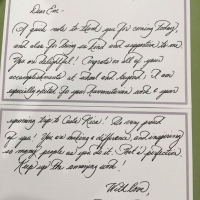 Dear Eve -
(A quick note to thank you for coming today,
and also for being so kind and supportive to me.
You are delightful! Congrats on all of your
accomplishments at school and beyond. I am
especially excited for your humanitarian work & your
upcoming trip to Costa Rica! So very proud
of you! You are making a difference, and inspiring
so many people as you do it.
Keep up the amazing work!
With love,